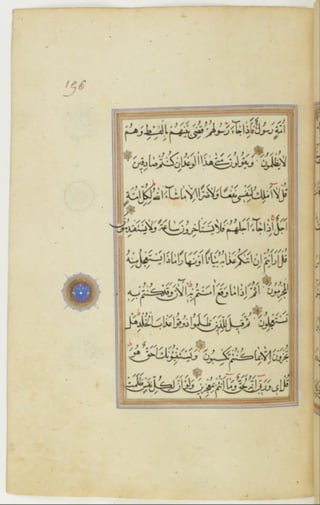 196
اُمَّةٍ رَسُولٌ فَاِذَا جَاءَ رَسُولُهُمْ قُضِيَ بَيْنَهُمْ بِالْقِسْطِ وَهُمْ
لَا يُظْلَمُونَ وَيَقُولُونَ مَتٰى هٰذَا الْوَعْدُ اِنْ كُنْتُمْ صَادِقِينَ
قُلْ لَا اَمْلِكُ لِنَفْسِى نَفْعًا وَلَا ضَرًّا اِلَّا مَا شَاءَ اللّٰهُ لِكُلِّ اُمَّةٍ
اَجَلٌ اِذَا جَاءَ اَجَلُهُمْ فَلَا يَسْتَأْخِرُونَ سَاعَةً وَلَا يَسْتَقْدِمُونَ
قُلْ اَرَاَيْتُمْ اِنْ اَتٰيكُمْ عَذَابُهُ بَيَاتًا اَوْ نَهَارًا مَاذَا يَسْتَعْجِلُ مِنْهُ
الْمُجْرِمُونَ اَثُمَّ اِذَا مَا وَقَعَ اٰمَنْتُمْ بِهِ اٰلْاٰنَ وَقَدْ كُنْتُمْ بِهِ
تَسْتَعْجِلُونَ ثُمَّ قِيلَ لِلَّذِينَ ظَلَمُوا ذُوقُوا عَذَابَ الْخُلْدِ هَلْ
تُجْزَوْنَ اِلَّا بِمَا كُنْتُمْ تَكْسِبُونَ وَيَسْتَنْبِئُونَكَ اَحَقٌّ هُوَ
قُلْ اِى وَرَبِّى اِنَّهُ لَحَقٌّ وَمَا اَنْتُمْ بِمُعْجِزِينَ وَلَوْ اَنَّ لِكُلِّ نَفْسٍ ظَلَمَتْ